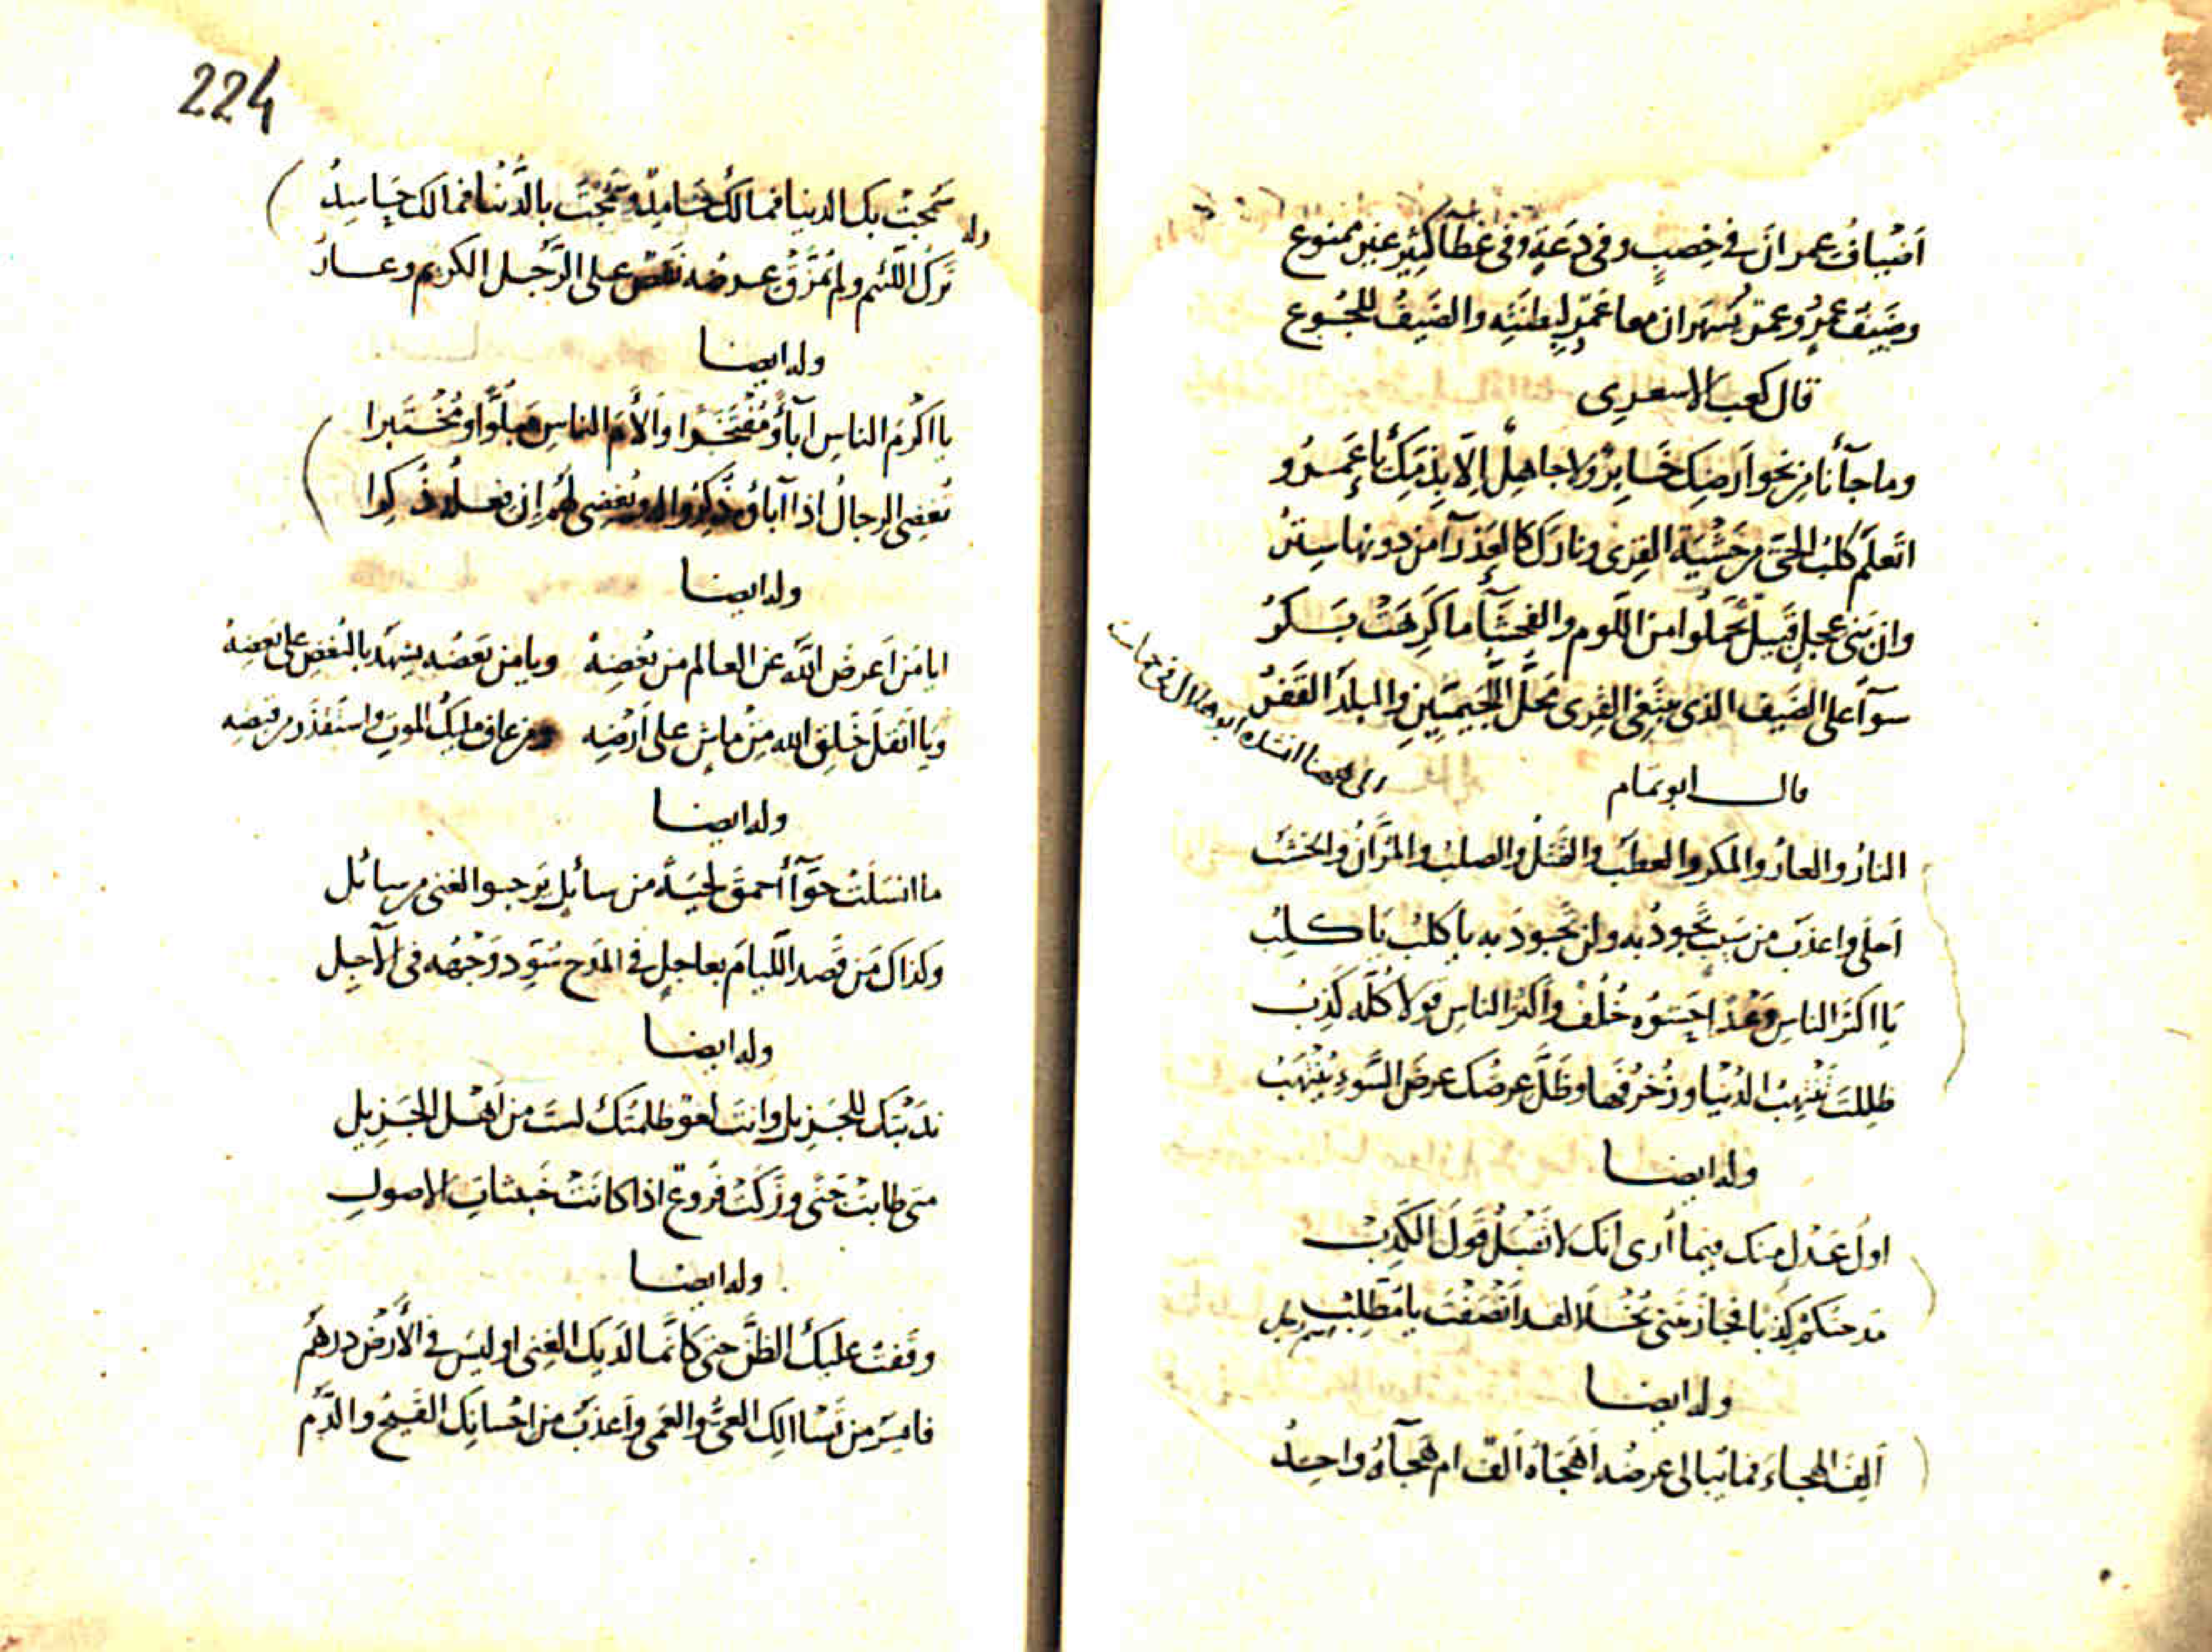 اَضْيافُ عمرانَ في خِصبٍ وفى دَعَةٍ وفى عَطآ كثيرٍ غيرِ ممنوع
وضَيفُ عمرٍو وعمرٌو يَسْهَرانِ معا عَمرٌو لِبِطنَتِه والضَيفُ للجُوع
قال كعب الاسعدى
وما جآءنا من نحو اَرضِك خَابِرٌ ولا جاهِلٌ اِلّا بِذمِّكَ يا عَمرُو
اتعلّم كلبَ الحىّ من خَشْيَة القِرى ونارَكَ كالعَذرآء من دونها سِترُ
وان بنى عجلٍ قَبيلٌ تَحَمَّلُوا من اللوم والفحشآءِ ما كَرِهَتْ بَكرُ
سوآءً على الضَيف الذى يبتغى القِرى مَحلُّ اللُجَيمِيّينِ والبلدُ القَفرُ
قال ابو تمام
النارُ والعارُ والمكروه والعطَبُ والقَتلُ والصلبُ والمُرّانُ والخَشَبُ
اَحلى واعذَبُ من سَيبٍ تَجودُ به ولن تجودَ به يا كلبُ يَا كلِبُ
يَا اكثرَ الناسِ وَعْدًا حَشْوُه خُلُفٌ واكثرَ الناسِ قَولًا كلُّه كَذِبُ
ظلِلتَ تَنتَهِبُ الدُنيا وزُخْرُفَها وظَلَّ عرضُك عرضَ السَّوءِ يُنْتَهَبُ
وله ايضا
اولُ عَدْلٍ منك فيما أرى انك لا تَقبَلُ قَولَ الكَذِبْ
مدحتكمْ كِذْبًا فجازَيتَنى بُخْلًا لقد اَنْصَفْتَ يا مُطَّلِبْ
اسم رجل
وله ايضا
اَلِفَ الهجاءَ فما يُبالى عرضُه اَهَجَاهُ اَلفٌ ام هَجَآهُ واحِدُ
انشده ابو هلال فى
224
وله
سَمُجَتْ بك الدنيا فمالكَ حَامِدٌ وسَمُجْتَ بالدُّنيا فما لك حَاسِدُ
تَركُ اللئيم ولم يُمَزَّقْ عرضُه نَقصٌ على الرَّجل الكريم وعارُ
وله ايضا
يا اكرمَ الناسِ آباءً ومُفتَخَرا واَلأَمَ الناسِ مَبلُوًّا ومُخْتَبرا
تُغضِى الرجالُ اذا آباؤه ذُكِرُوا له ويُغضِى لهُم اِن فعلُه ذُكِرا
وله ايضا
ايا مَن اَعرضَ اللّه عن العالم من بُغضِهْ ويا من بَعضُه يشهَد بالبُغضِ على بَعضِهْ
ويَا اثقلَ خَلقِ الله مِن ماشٍ على اَرْضِه ومن عاف مليكُ الموتِ واستقذَر من قبضِه
وله ايضا
ما انسَلَتْ حَوّآءُ أحمقَ لحيَةً من سائلٍ يَرجو الغنى من سائل
وكذاك مَن قصد اللّيامَ بعاجلٍ في المَدح سُوِّد وَجْهُه فى الآجل
وله ايضا
نَدَبتُك للجَزيل وانتَ لغوٌ ظلمتكَ لستَ من اَهْل الجَزيل
متى طابتْ جَنًى وزَكَتْ فُروعٌ اذا كانَتْ خَبيثاتِ الاصولِ
وله ايضا
وقَفتُ عليك الظنَّ حتى كانَّما لديك الغِنى او ليسَ في الأَرض درهمُ
فاميَزُ من تَسْالِك العىُّ والعَمى واَعذَبُ من اِحْسانِك القَيحُ والدَّمُ